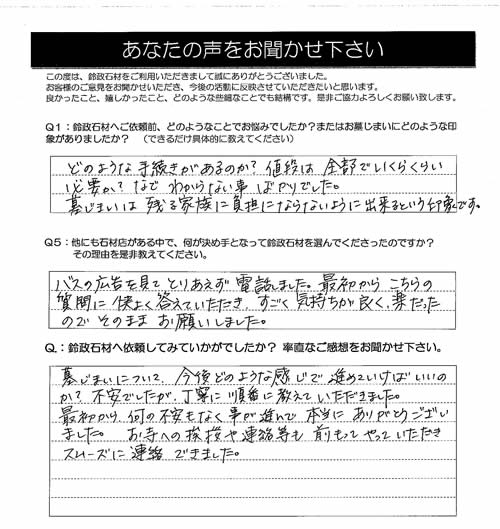 あなたの声をお聞かせ下さい
この度は、鈴政石材をご利用いただきまして誠にありがとうございました。
お客様のご意見をお聞かせいただき、今後の活動に反映させていただきたいと思います。
良かったこと、嬉しかったこと、どのような些細なことでも結構です。是非ご協力よろしくお願い致します。
Q1：鈴政石材へご依頼前、どのようなことでお悩みでしたか？またはお墓じまいにどのような印
象がありましたか？　（できるだけ具体的に教えてください）
どのような手続きがあるのか？値段は全部でいくらくらい
必要か？など わからない事ばかりでした。
墓じまいは残る家族に負担にならないように出来るという印象です。
Q5：他にも石材店がある中で、何が決め手となって鈴政石材を選んでくださったのですか？
その理由を是非教えてください。
バスの広告を見て とりあえず 電話しました。最初から こちらの
質問に 快よく答えていただき、すごく気持ちが良く、楽だった
ので そのまま お願いしました。
Q.：鈴政石材へ依頼してみていかがでしたか？ 率直なご感想をお聞かせ下さい。
墓じまいについて、今後どのような感じで進めていけばいいの
か？不安でしたが、丁寧に順番に教えていただきました。
最初から、何の不安もなく事が進んで 本当に ありがとうござい
ました。 お寺への挨拶や連絡等も 前もって やっていただき
スムーズに連絡 できました。